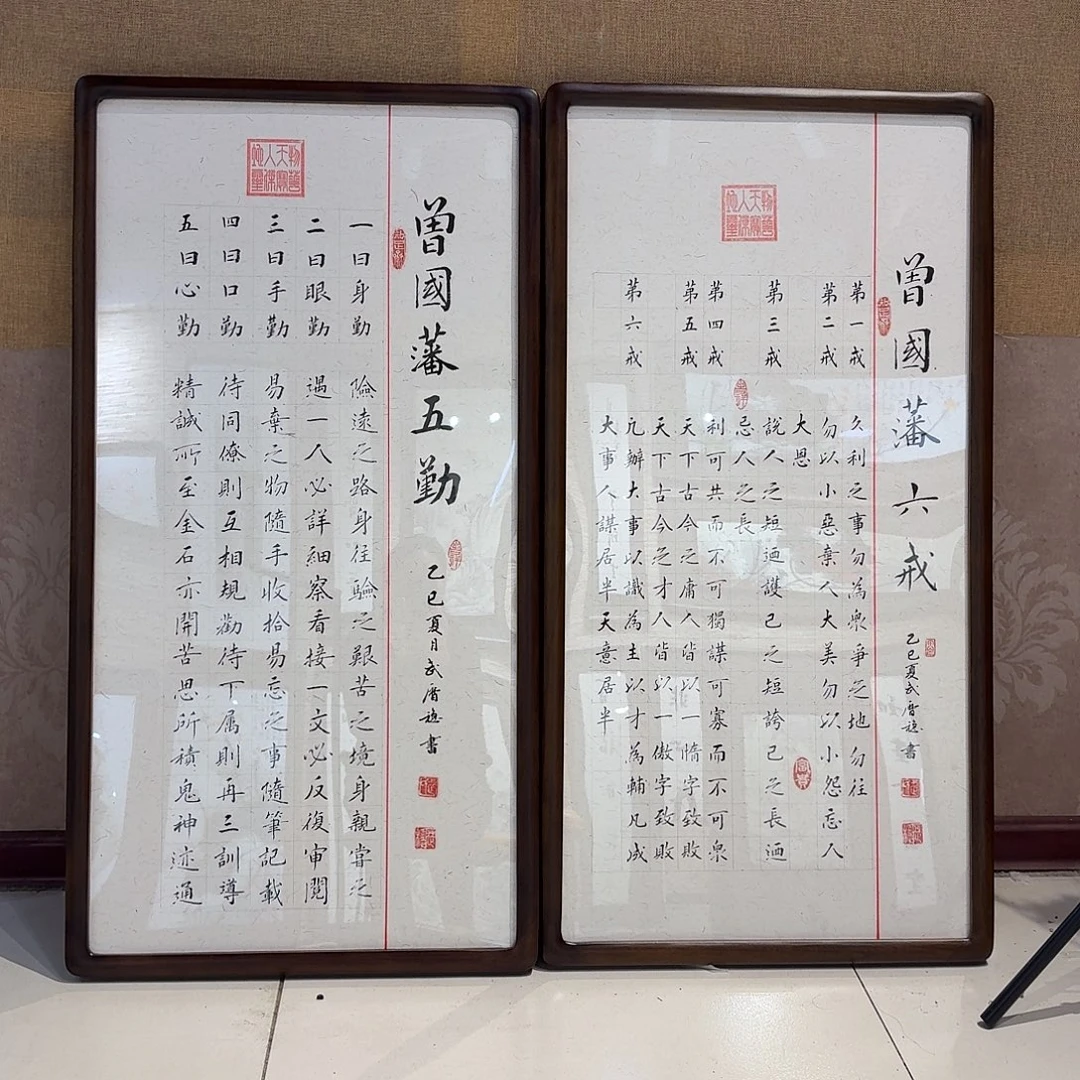 曾國藩六戒
乙巳夏武
書
第一戒 久利之事勿為衆爭之地勿往
第二戒 勿以小惡棄人大美勿以小怨忘人
大恩
第三戒 說人之短迺護己之短誇己之長迺
忌人之長
第四戒 利可共而不可獨謀可寡而不可衆
第五戒 天下古今之庸人皆以一惰字致敗
天下古今之才人皆以一傲字致敗
第六戒 凢辦大事以識為主以才為輔凡成
大事人謀居半天意居半
曾國藩五勤
乙巳夏月武
書
一曰身勤 險遠之路身往驗之艱苦之境身親嘗之
二曰眼勤 遇一人必詳細察看接一文必反復審閱
三曰手勤 易棄之物隨手收拾易忘之事隨筆記載
四曰口勤 待同僚則互相規勸待下属則再三訓導
五曰心勤 精誠所至金石亦開苦思所積鬼神迹通